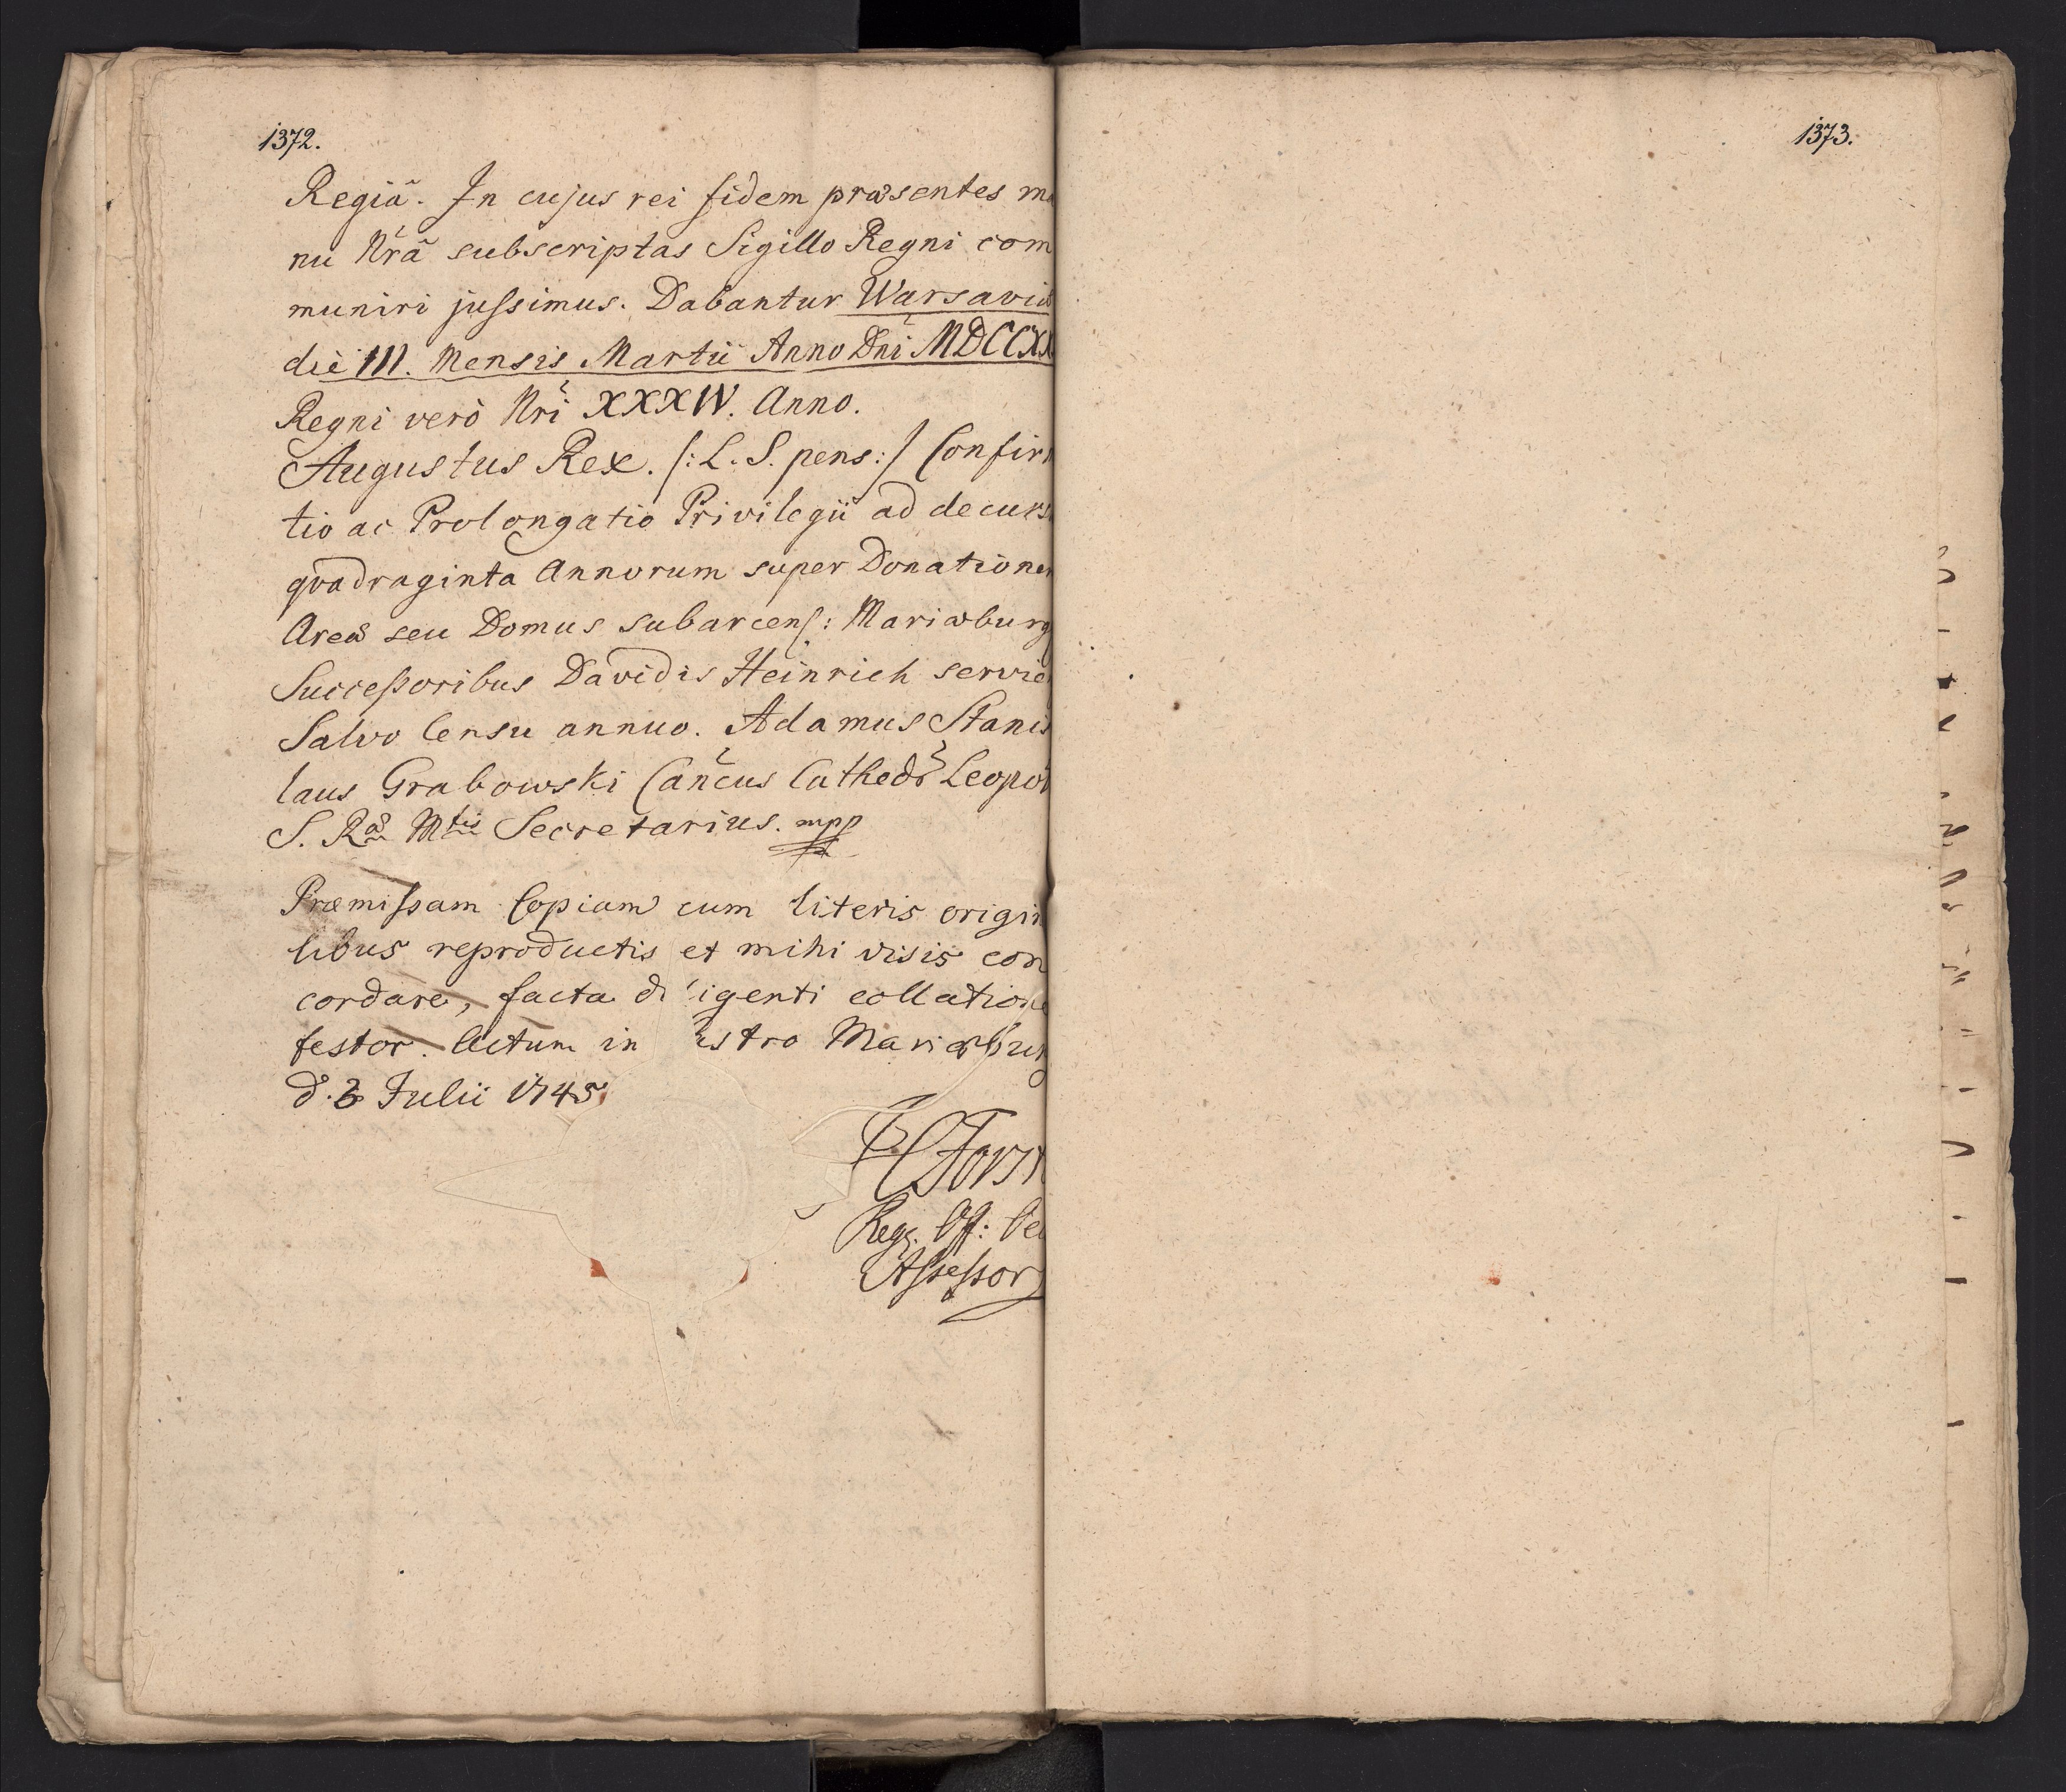 1372.
Regiâ. In cujus rei fidem præsentes ma
nu Nrâ subscriptas Sigillo Regni com
muniri jussimus. Dabantur Warsaviæ
die III. Mensis Martii Anno Dni MDCCXX
Regni verò Nri XXXIV. Anno.
Augustus Rex. /:L. S. pens:/ Confir
tio ac Prolongatio Privilegii ad decurs
qvadraginta Annorum super Donationem
Areæ seu Domus subarcens: Mariæburg
Successoribus Davidis Heinrich servie
Salvo Censu annuo. Adamus Stanis
laus Grabowski Cancus Cathedr Leopol
S. Ræ Mtis Secretarius. mpp
Præmissam Copiam cum literis origin
libus reproductis et mihi visis con
cordare, facta di igenti collatione
testor. Actum in stro Mariæbur
d. 3 Julii 1745.
Regs. Off:
Assessor
1373.